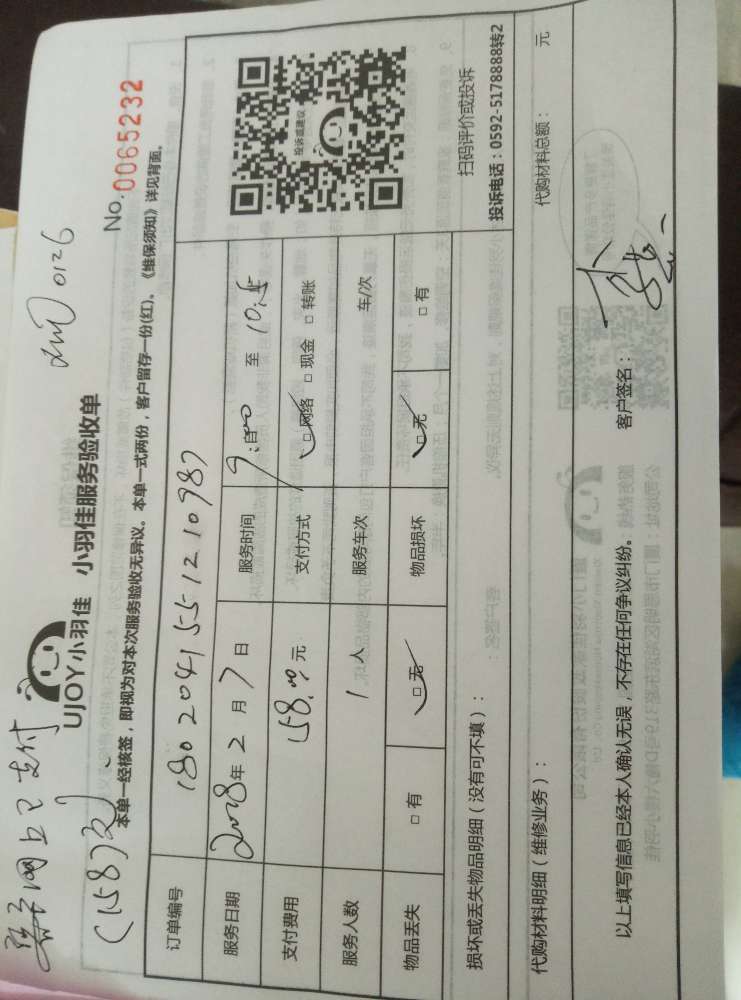 网上已支付
(158)元
0126
UJOY小羽佳 小羽佳服务验收单
No. 0065232
本单一经核签，即视为对本次服务验收无异议。本单一式两份，客户留存一份(红)。《维保须知》详见背面。
订单编号 180204155121098
服务日期 2018年2月7日 服务时间 9:00 自 至 10:15
支付费用 158.00元 支付方式 ☑网络 □现金 □转账
服务人数 1人 服务车次 车/次
物品丢失 □有 ☑无 物品损坏 ☑无 □有
投诉或建议
扫码评价或投诉
投诉电话：0592-5178888转2
损坏或丢失物品明细（没有可不填）：
代购材料明细（维修业务）： 代购材料总额： 元
以上填写信息已经本人确认无误，不存在任何争议纠纷。 客户签名：